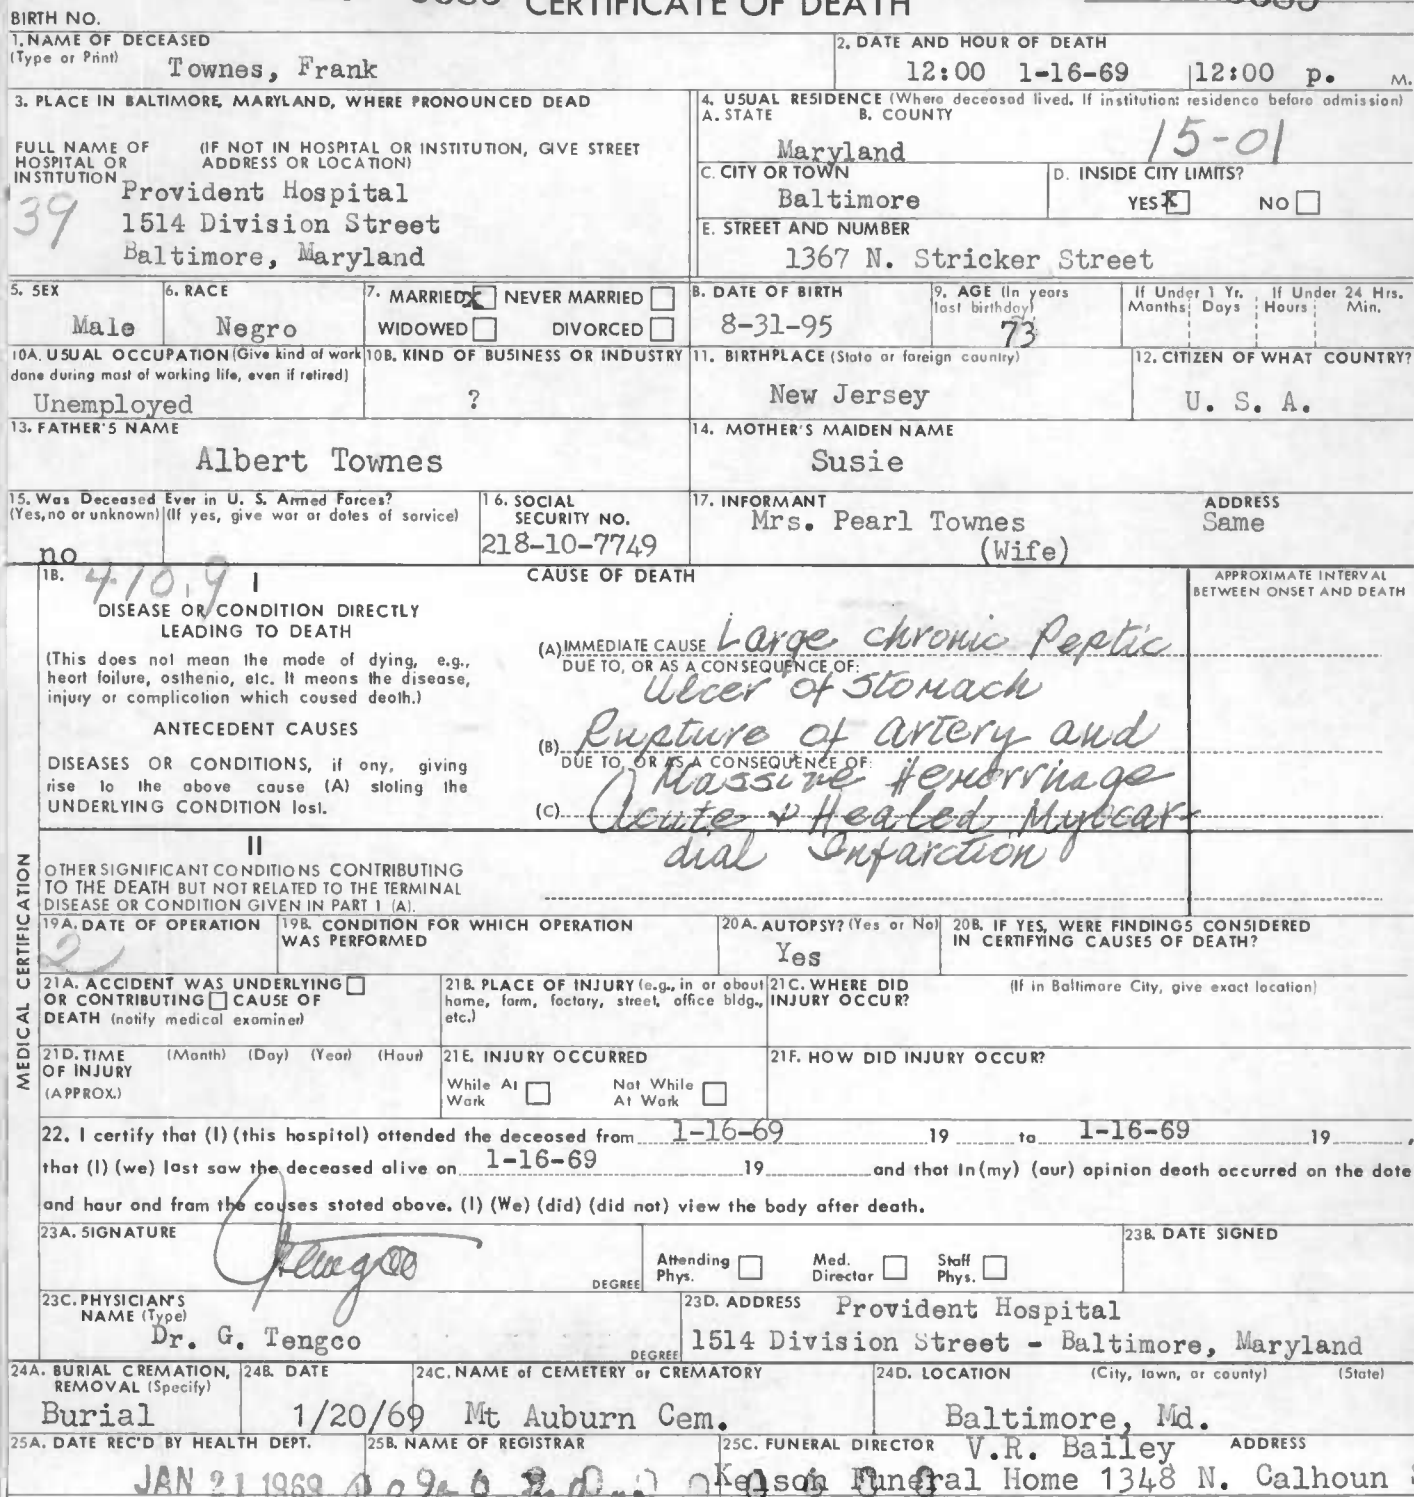 CERTIFICATE OF DEATH
BIRTH NO.
1. NAME OF DECEASED
(Type or Print)
Townes, Frank
2. DATE AND HOUR OF DEATH
12:00 1-16-69 12:00 p. M.
3. PLACE IN BALTIMORE, MARYLAND, WHERE PRONOUNCED DEAD
FULL NAME OF HOSPITAL OR INSTITUTION
(IF NOT IN HOSPITAL OR INSTITUTION, GIVE STREET ADDRESS OR LOCATION)
39
Provident Hospital
1514 Division Street
Baltimore, Maryland
4. USUAL RESIDENCE (Where deceased lived. If institution: residence before admission)
A. STATE B. COUNTY
Maryland 15-01
C. CITY OR TOWN
Baltimore
D. INSIDE CITY LIMITS?
YES X NO
E. STREET AND NUMBER
1367 N. Stricker Street
5. SEX
Male
6. RACE
Negro
7. MARRIED X NEVER MARRIED
WIDOWED DIVORCED
8. DATE OF BIRTH
8-31-95
9. AGE (In years last birthday)
73
If Under 1 Yr. Months Days
If Under 24 Hrs. Hours Min.
10A. USUAL OCCUPATION (Give kind of work done during most of working life, even if retired)
Unemployed
10B. KIND OF BUSINESS OR INDUSTRY
?
11. BIRTHPLACE (State or foreign country)
New Jersey
12. CITIZEN OF WHAT COUNTRY?
U. S. A.
13. FATHER'S NAME
Albert Townes
14. MOTHER'S MAIDEN NAME
Susie
15. Was Deceased Ever in U. S. Armed Forces?
(Yes, no or unknown) (If yes, give war or dates of service)
no
16. SOCIAL SECURITY NO.
218-10-7749
17. INFORMANT
Mrs. Pearl Townes
(Wife)
ADDRESS
Same
18. 410.9 I
CAUSE OF DEATH
APPROXIMATE INTERVAL BETWEEN ONSET AND DEATH
DISEASE OR CONDITION DIRECTLY LEADING TO DEATH
(This does not mean the mode of dying, e.g., heart failure, asthenia, etc. It means the disease, injury or complication which caused death.)
ANTECEDENT CAUSES
DISEASES OR CONDITIONS, if any, giving rise to the above cause (A) stating the UNDERLYING CONDITION last.
(A) IMMEDIATE CAUSE Large chronic Peptic
DUE TO, OR AS A CONSEQUENCE OF:
Ulcer of Stomach
(B) Rupture of artery and
DUE TO, OR AS A CONSEQUENCE OF:
Massive Hemorrhage
(C) Acute & Healed Myocar-
dial Infarction
II
OTHER SIGNIFICANT CONDITIONS CONTRIBUTING TO THE DEATH BUT NOT RELATED TO THE TERMINAL DISEASE OR CONDITION GIVEN IN PART 1 (A).
MEDICAL CERTIFICATION
19A. DATE OF OPERATION
2
19B. CONDITION FOR WHICH OPERATION WAS PERFORMED
20A. AUTOPSY? (Yes or No)
Yes
20B. IF YES, WERE FINDINGS CONSIDERED IN CERTIFYING CAUSES OF DEATH?
21A. ACCIDENT WAS UNDERLYING OR CONTRIBUTING CAUSE OF DEATH (notify medical examiner)
21B. PLACE OF INJURY (e.g., in or about home, farm, factory, street, office bldg., etc.)
21C. WHERE DID INJURY OCCUR?
(If in Baltimore City, give exact location)
21D. TIME OF INJURY (APPROX.)
(Month) (Day) (Year) (Hour)
21E. INJURY OCCURRED
While At Work Not While At Work
21F. HOW DID INJURY OCCUR?
22. I certify that (I) (this hospital) attended the deceased from 1-16-69 19 to 1-16-69 19,
that (I) (we) last saw the deceased alive on 1-16-69 19 and that in (my) (our) opinion death occurred on the date
and hour and from the causes stated above. (I) (We) (did) (did not) view the body after death.
23A. SIGNATURE
Tengco
DEGREE
Attending Phys. Med. Director Staff Phys.
23B. DATE SIGNED
23C. PHYSICIAN'S NAME (Type)
Dr. G. Tengco
DEGREE
23D. ADDRESS
Provident Hospital
1514 Division Street - Baltimore, Maryland
24A. BURIAL CREMATION, REMOVAL (Specify)
Burial
24B. DATE
1/20/69
24C. NAME of CEMETERY or CREMATORY
Mt Auburn Cem.
24D. LOCATION (City, town, or county) (State)
Baltimore, Md.
25A. DATE REC'D BY HEALTH DEPT.
JAN 21 1969
25B. NAME OF REGISTRAR
25C. FUNERAL DIRECTOR ADDRESS
V.R. Bailey
Kelson Funeral Home 1348 N. Calhoun